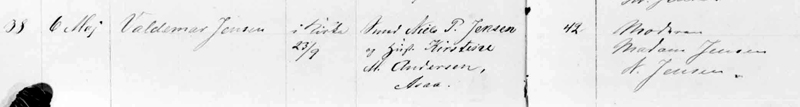 38 6 Maj Valdemar Jensen i Kirke 23/9 Smed Niels P. Jensen 42 Moderen
og Hust. Kirstine Madam Jensen
M. Andersen, N. Jensen
Asaa.